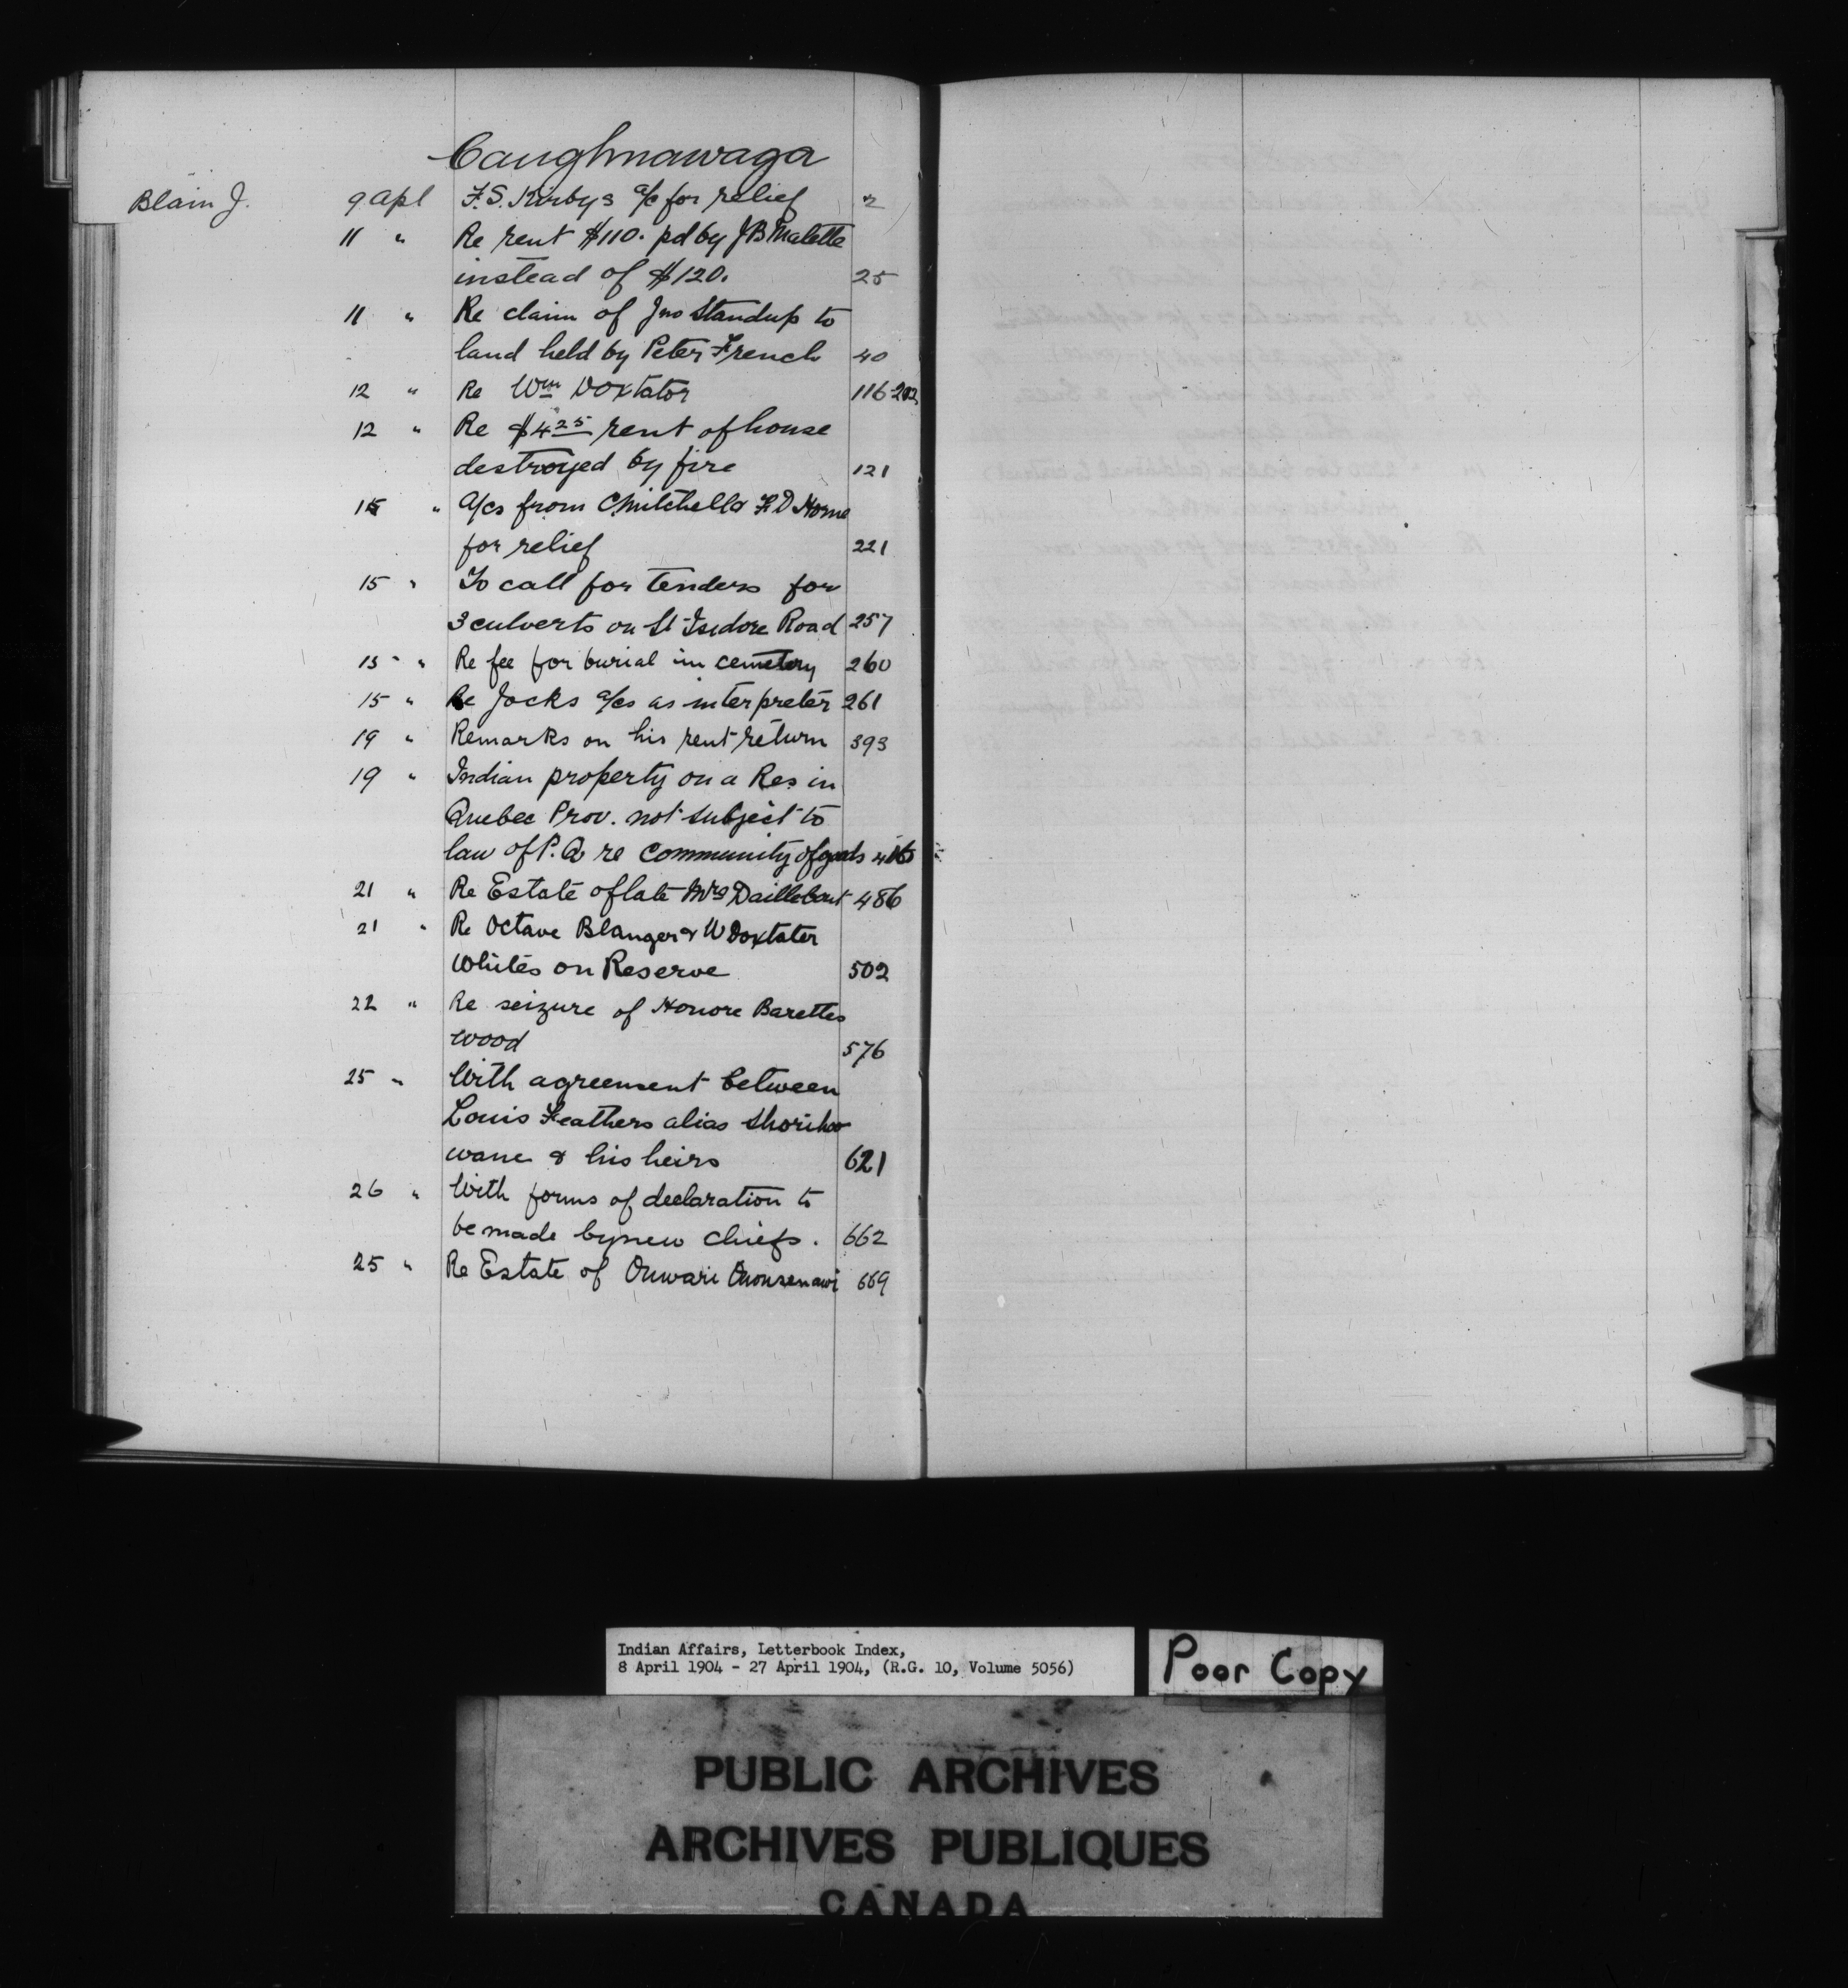 Caughnawaga
Blain J. 9 Apl F. S. Kirbys a/c for relief 2
11 " Re rent $110. pd by J B Malette
instead of $120. 25
11 " Re claim of Jno Standup to
land held by Peter French 40
12 " Re Wm Doxtator 116
12 " Re $4 25 rent of house
destroyed by fire 121
15 " A/cs from C Mitchell & F D Horne
for relief 221
15 " To call for Tenders for
3 culverts on St Isidore Road 257
15 " Re fee for burial in cemetery 260
15 " Re Jocks a/cs as interpreter 261
19 " Remarks on his rent return 393
19 " Indian property on a Res in
Quebec Prov. not subject to
law of P. Q re Community of goods
21 " Re Estate of late Mrs Daillebout 486
21 " Re Octave Blanger & W Doxtater
Whites on Reserve 502
22 " Re seizure of Honore Barettes
wood 576
25 " With agreement between
Louis Feathers alias Shoriho
wane & his heirs 621
26 " With forms of declaration to
be made by new chiefs. 662
25 " Re Estate of Onwari Ononsenawi 669
Indian Affairs, Letterbook Index,
8 April 1904 - 27 April 1904, (R.G. 10, Volume 5056)
Poor Copy
PUBLIC ARCHIVES
ARCHIVES PUBLIQUES
CANADA